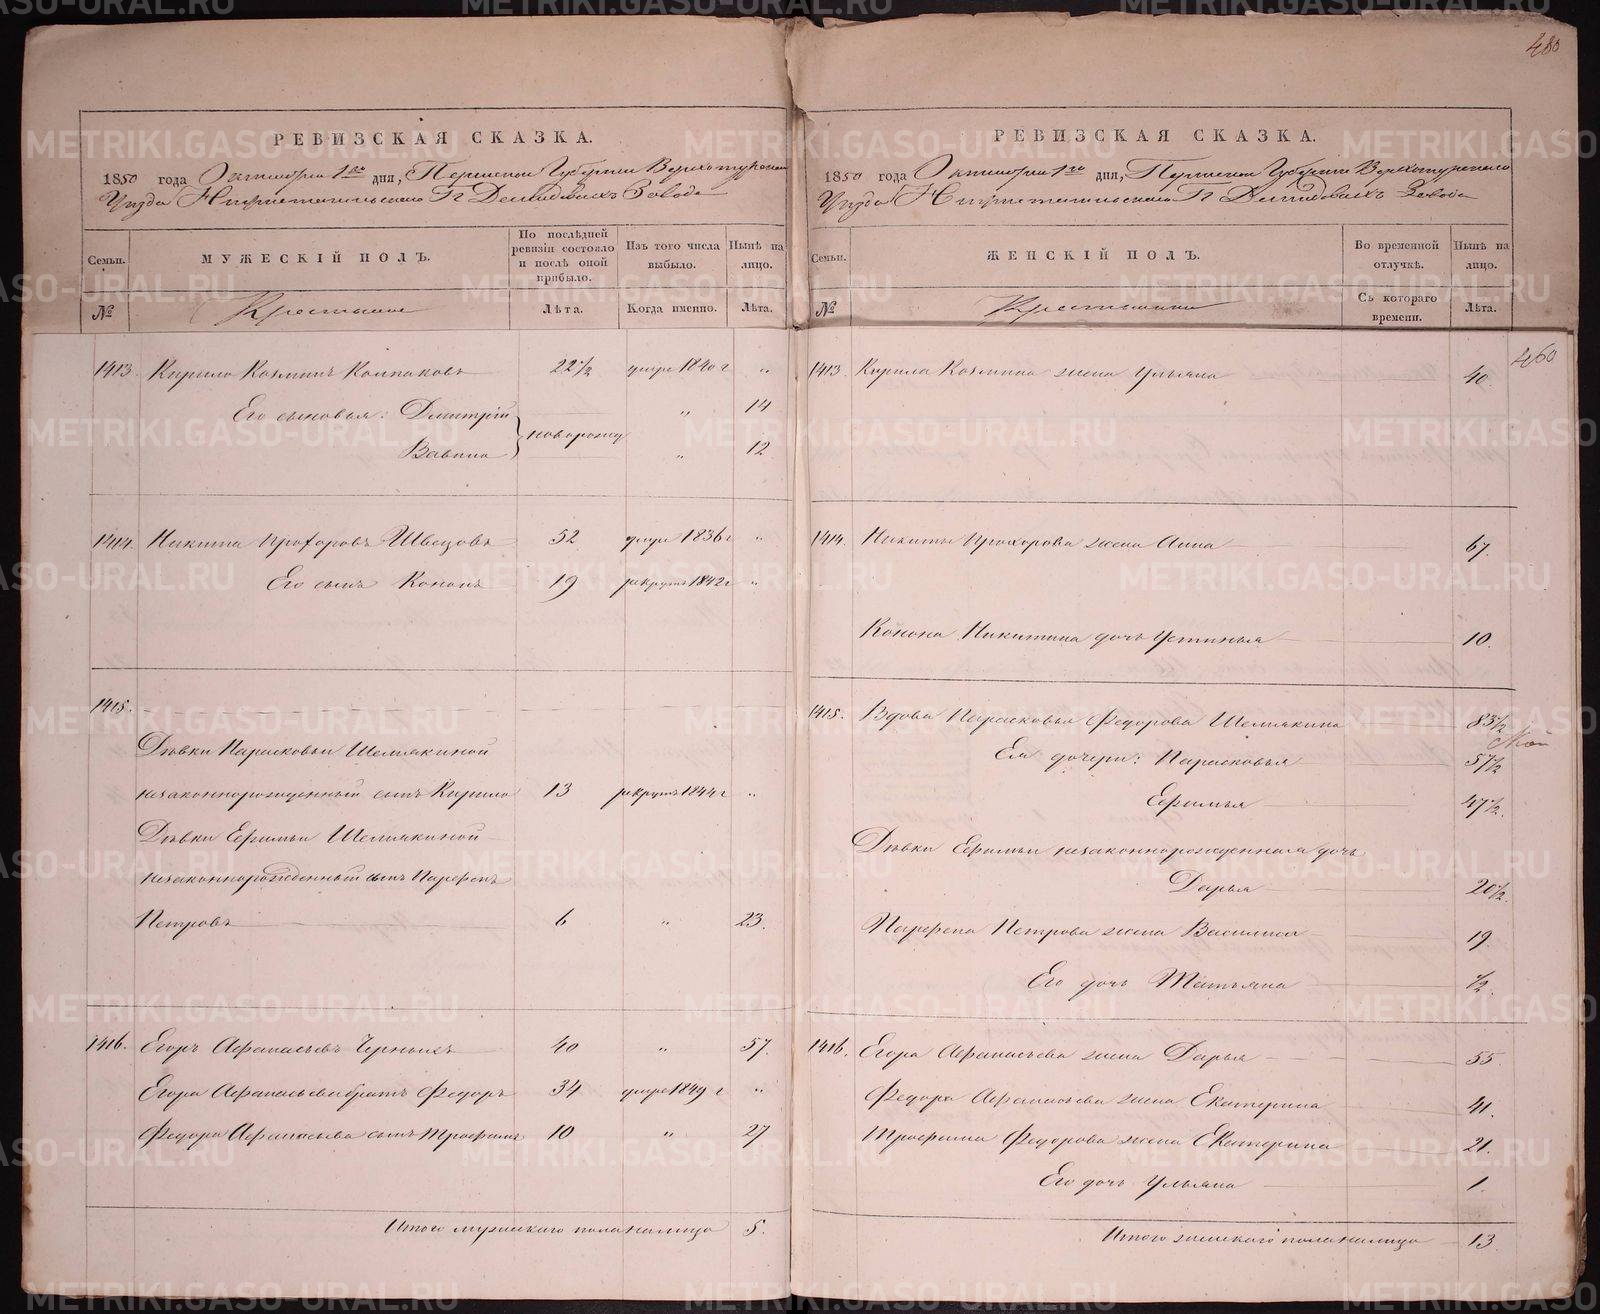 480
РЕВИЗСКАЯ СКАЗКА.
1850 года Октября 1го дня, Пермской Губернии Верхотурскаго
Уезда Н. Г. Демидовыхъ Завода
Семьи.
МУЖЕСКІЙ ПОЛЪ.
По послѣдней ревизіи состояло и послѣ оной прибыло.
Изъ того числа выбыло.
Нынѣ на лицо.
№
Крестьяне
Лѣта.
Когда именно.
Лѣта.
1413. Кирило Козминъ Колпаковъ 22½ умре 1840 г „
Его сыновья: Дмитрій новорожд „ 14
Вавило „ 12
1414. Никита Прохоровъ Швецовъ 52 умре 1836 г „
Его сынъ Кононъ 19 рекрутъ 1842 г „
1415.
Дѣвки Парасковьи Шемякиной
незаконнорожденный сынъ Кирило 13 рекрутъ 1844 г „
Дѣвки Ефимьи Шемякиной
незаконнорожденный сынъ Парфенъ
Петровъ 6 „ 23.
1416. Егоръ Афанасьевъ Черныхъ 40 „ 57.
Егора Афанасьева братъ Федоръ 34 умре 1849 г „
Федора Афанасьева сынъ Трофимъ 10 „ 27
Итого мужескаго пола налицо 5.
РЕВИЗСКАЯ СКАЗКА.
1850 года Октября 1го дня, Пермской Губерніи Верхотурскаго
Уезда Н. Г. Демидовыхъ Завода
Семьи.
ЖЕНСКІЙ ПОЛЪ.
Во временной отлучкѣ.
Нынѣ на лицо.
№
Крестьянки
Съ котораго времени.
Лѣта.
460
1413. Кирила Козмина жена Ульяна 40
1414. Никиты Прохорова жена Анна 67.
Конона Никитина дочь Устинья 10.
1415. Вдова Парасковья Федорова Шемякина 83½
Ея дочери: Парасковья 57½
Ефимья 47½.
Дѣвки Ефимьи незаконнорожденная дочь
Дарья 20½.
Парфена Петрова жена Василиса 19.
Его дочь Татьяна ½.
1416. Егора Афанасьева жена Дарья 55.
Федора Афанасьева жена Екатерина 41.
Трофима Федорова жена Екатерина 21.
Его дочь Ульяна 1.
Итого женскаго пола налицо 13.
METRIKI.GASO-URAL.RU